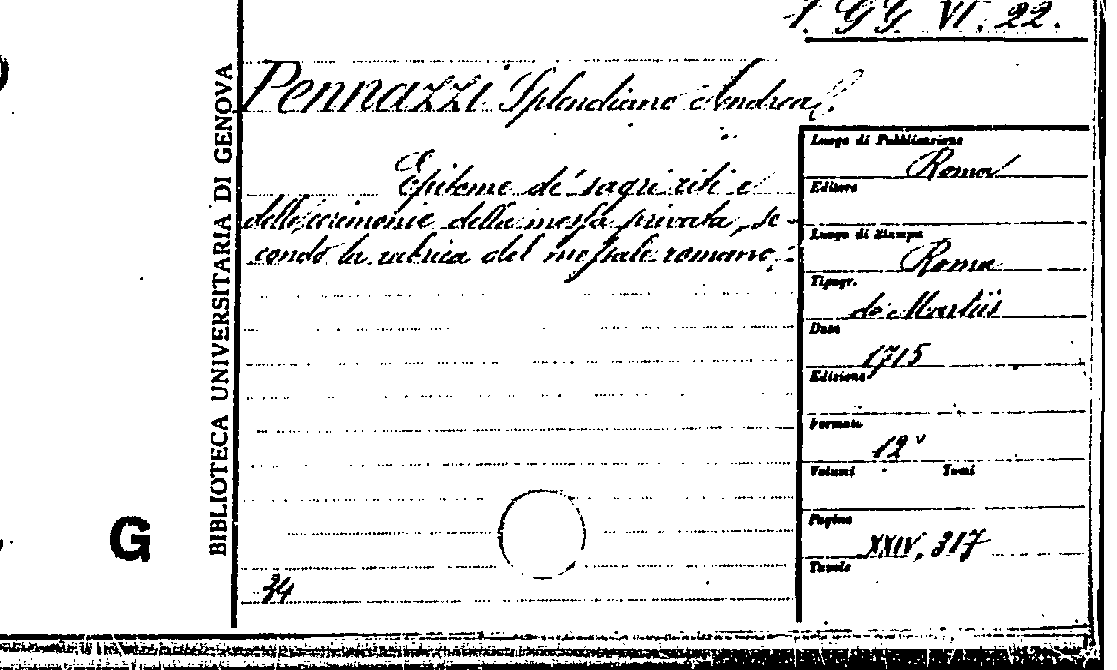 1. GG. VI. 22.
Pennazzi Splendiano Andrea
Epitome de' sagri riti e
delle cerimonie della messa privata, se-
condo la rubrica del messale romano.
Luogo di Pubblicazione
Roma
Editore
Luogo di Stampa
Roma
Tipogr.
de Martiis
Data
1715
Edizione
Formato
12°
Volumi Tomi
Pagine
XXIV, 317
Tavole
34
BIBLIOTECA UNIVERSITARIA DI GENOVA
G